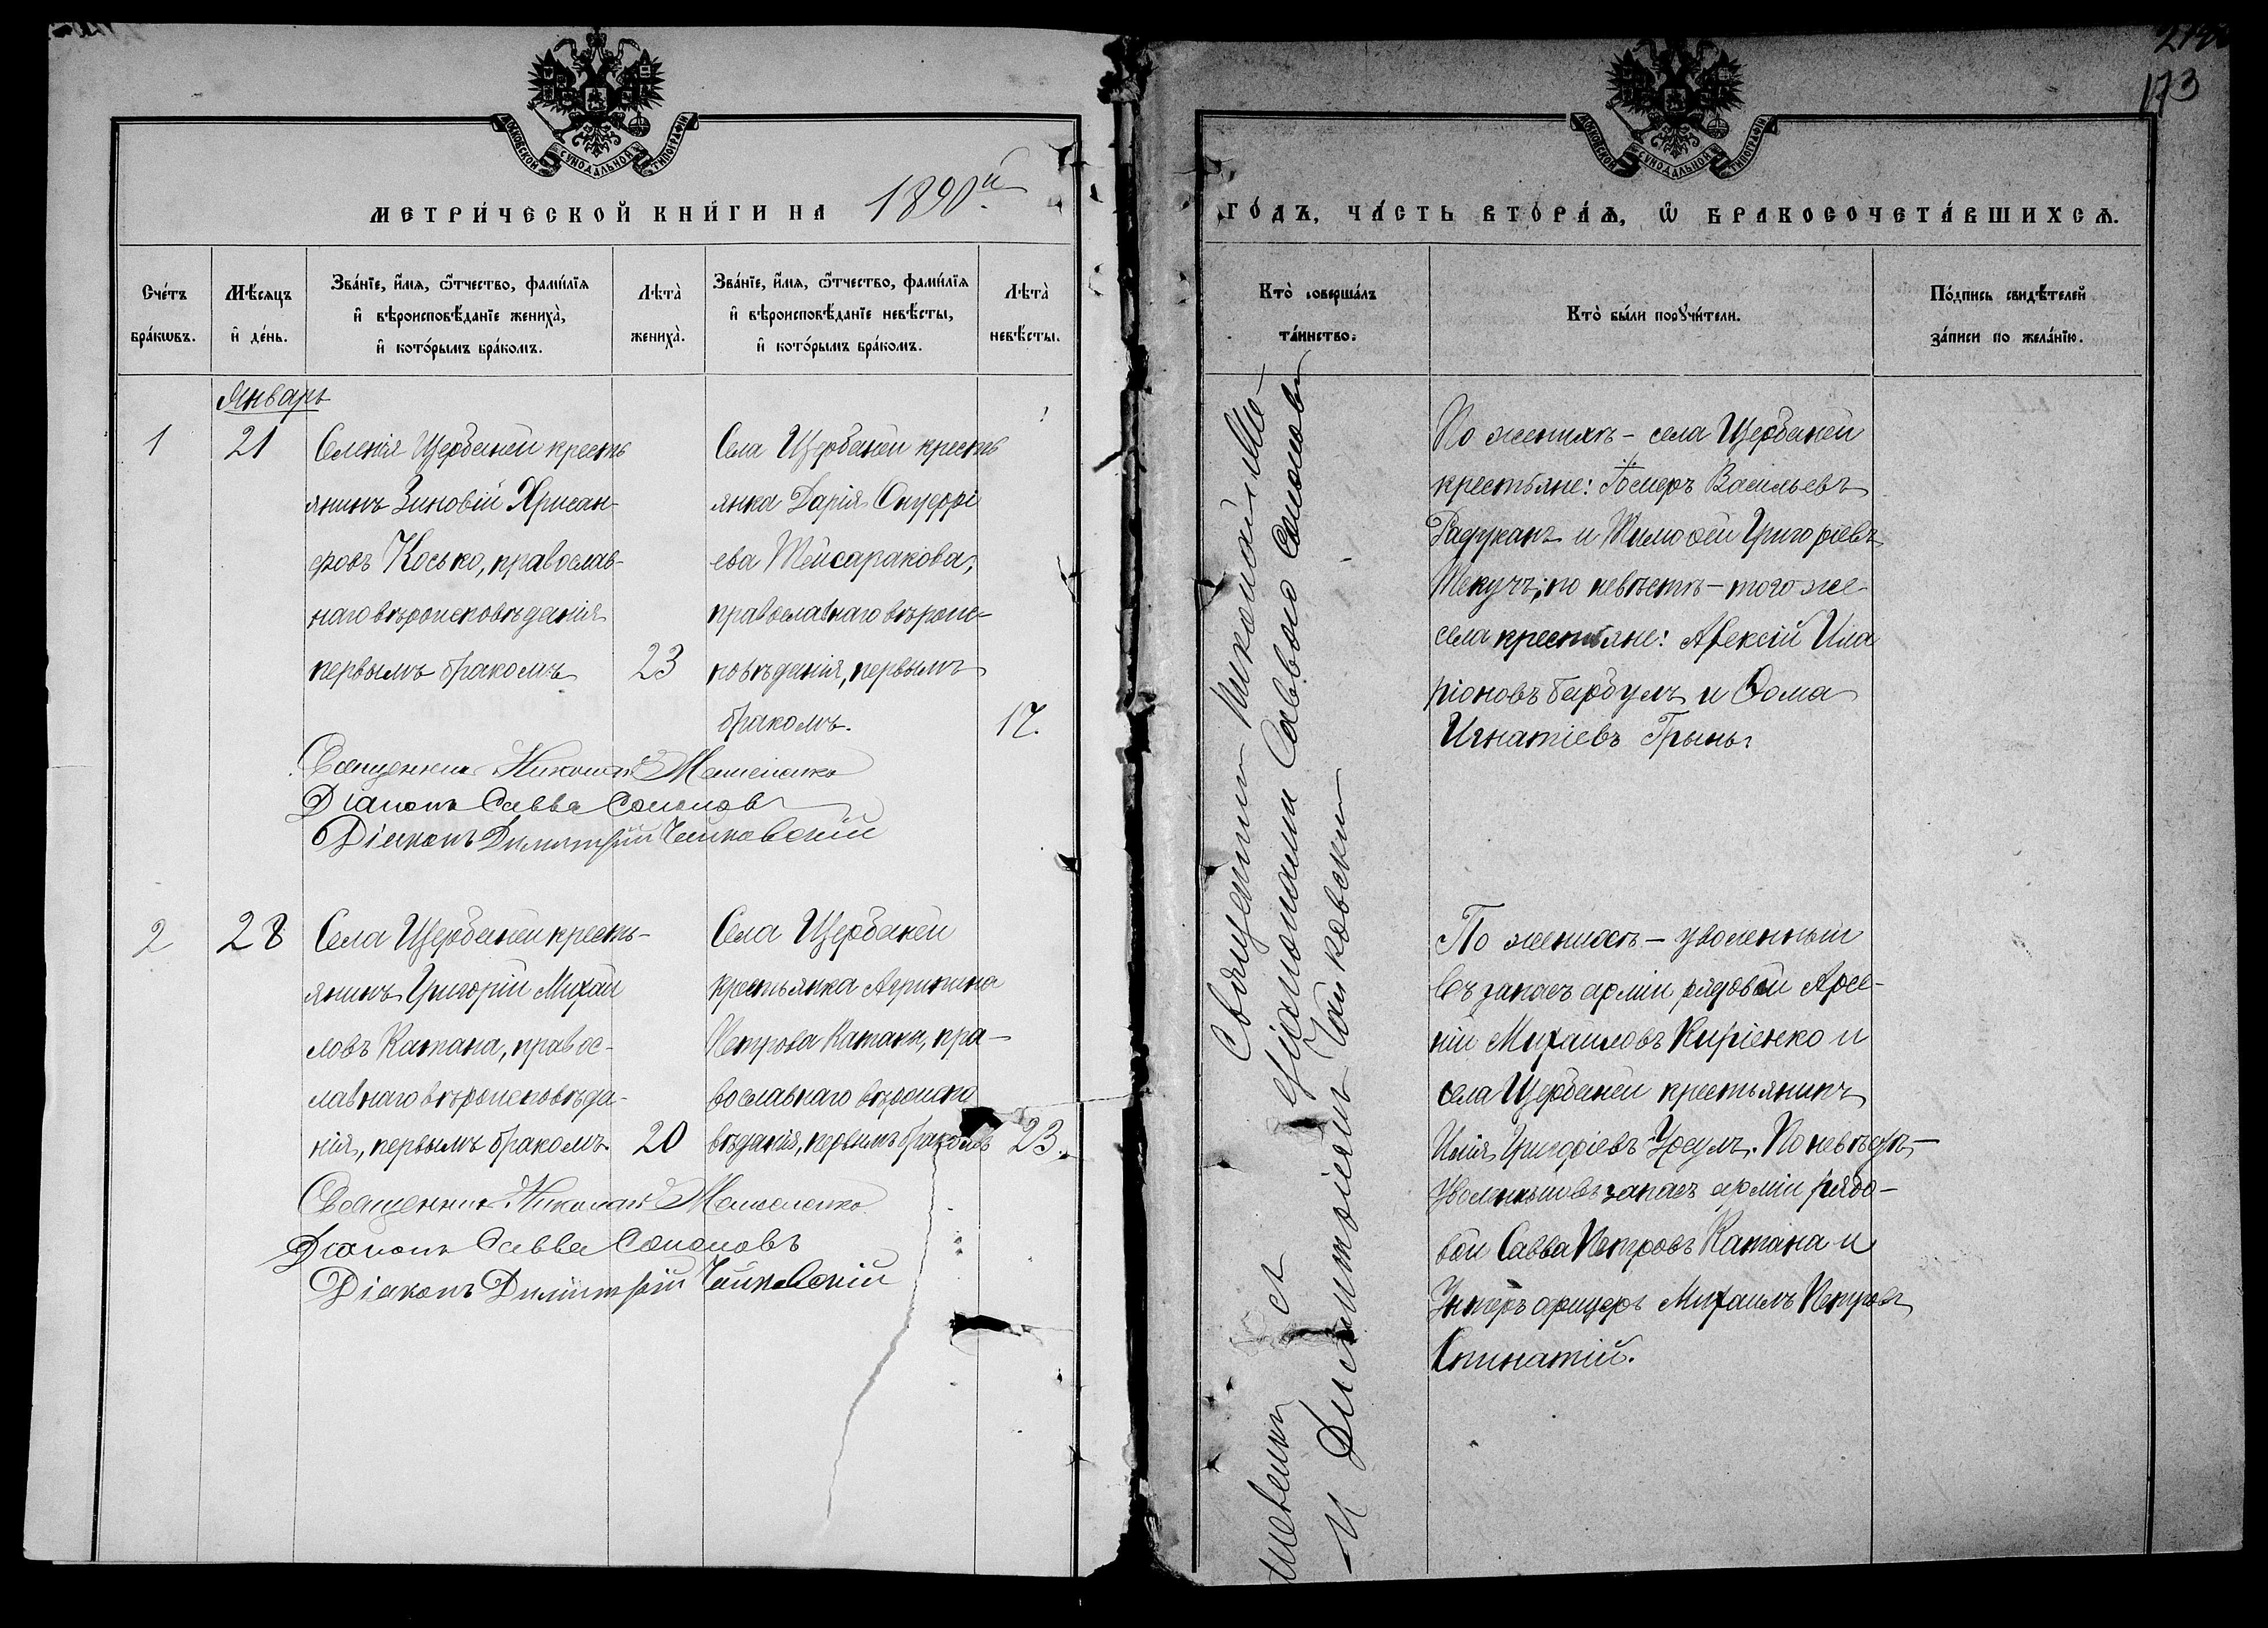 173
МОСКОВСКОЙ СѴНОДАЛЬНОЙ ТИПОГРАФІИ
МЕТРИ́ЧЕСКОЙ КНИ́ГИ НА 1890й
Сче́тъ бра́кѡвъ.
Мѣ́сѧцъ и҆ де́нь.
Зва́нїе, и҆́мѧ, ѻ҆́тчество, фами́лїѧ
и҆ вѣроисповѣ́данїе жениха̀,
и҆ кото́рымъ бра́комъ.
Лѣта̀ жениха̀.
Зва́нїе, и҆́мѧ, ѻ҆́тчество, фами́лїѧ
и҆ вѣроисповѣ́данїе невѣ́сты,
и҆ кото́рымъ бра́комъ.
Лѣта̀ невѣ́сты.
Январь
1
21
Селенія Щербаней кресть
янинъ Зиновій Хрисан-
фовъ Косько, православ-
наго вѣроисповѣданія
первымъ бракомъ
23
Села Щербаней кресть
янка Дарія Онуфрі
ева Тейсаракова,
православнаго вѣроис-
повѣданія, первымъ
бракомъ.
17.
Священникъ Николай
Діаконъ Савва Солоновъ
Діаконъ Димитрій Чайковскій
2
28
Села Щербаней кресть-
янинъ Григорій Михаи
ловъ Катана, правос-
лавнаго вѣроисповѣда-
нія, первымъ бракомъ.
20
Села Щербаней
крестьянка Агрипина
Петрова Катана, пра-
вославнаго вѣроиспо
вѣданія, первымъ бракомъ
23.
Священникъ Николай
Діаконъ Савва Солоновъ
Діаконъ Димитрій Чайковскій
МОСКОВСКОЙ СѴНОДАЛЬНОЙ ТИПОГРАФІИ
ГО́ДЪ, ЧА́СТЬ ВТОРА́Ѧ, Ѡ҆ БРАКОСОЧЕТА́ВШИХСѦ.
Кто̀ соверша́лъ
та́инство.
Кто̀ бы́ли порꙋчи́тели.
По́дпись свидѣ́телей
за́писи по жела́нїю.
Священникъ Николай
съ діаконами Саввою Солоновъ
и Димитріемъ Чайковскимъ
По женихѣ – села Щербаней
крестьяне: Васильевъ
и Тимофей Григоріевъ
Текучъ; по невѣстѣ – того же
села крестьяне: Алексій Ила
ріоновъ Барбулъ и Ѳома
Игнатіевъ Грынь.
По женихѣ – уволенный
въ запасъ арміи рядовой Арсе-
ній Михаиловъ Киріенко и
села Щербаней крестьянинъ
Илія Григоріевъ Урсулъ. По невѣстѣ –
уволенный въ запасъ арміи рядо-
вой Савва Петровъ Катана и
Унтеръ офицеръ Михаилъ Петровъ
Спинатій.